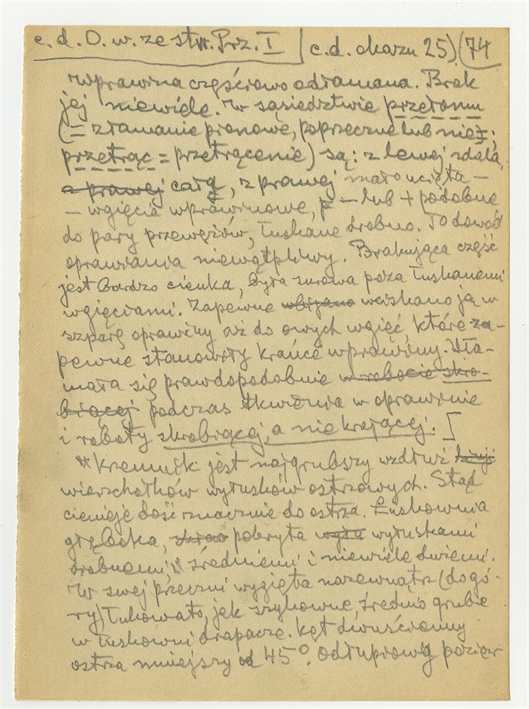 c. d. O. w. ze str. Prz. I c. d. okazu 25) (74
wprawna częściowo odłamana. Brak
jej niewiele. W sąsiedztwie przełomu
(= złamanie pionowe, poprzeczne lub nie=;
przetrąc = przetrącenie) są: z lewej zdala
z prawej całą, z prawej mało ucięta –
– wgięcia wprawinowe, – lub + podobne
do pary przewęzów, łuskane drobno. To dowód
oprawiania niewątpliwy. Brakująca część
jest bardzo cienka, była surowa poza łuskanemi
wgięciami. Zapewne wbijano wciskano ją w
szparę oprawiny aż do owych wgięć które za-
pewne stanowiły krańce wprawiny. Uła-
mała się prawdopodobnie w robocie skro-
biącej podczas tkwienia w oprawinie
i roboty skrobiącej, a nie krającej. [
Krzemyk jest najgrubszy wzdłuż
wierzchołków wyłusków ostrzowych. Stąd
cienieje dość znacznie do ostrza. Łuskownia
głęboka, pokryta wyłuskami
drobnemi, średniemi i niewiele dużemi.
W swej przeczni wygięta nazewnątrz (do gó-
ry) łukowato, jak szykowne, średnio grube
w łuskowni drapacze. Kąt dwuścienny
ostrza mniejszy od 45°. odłupiową